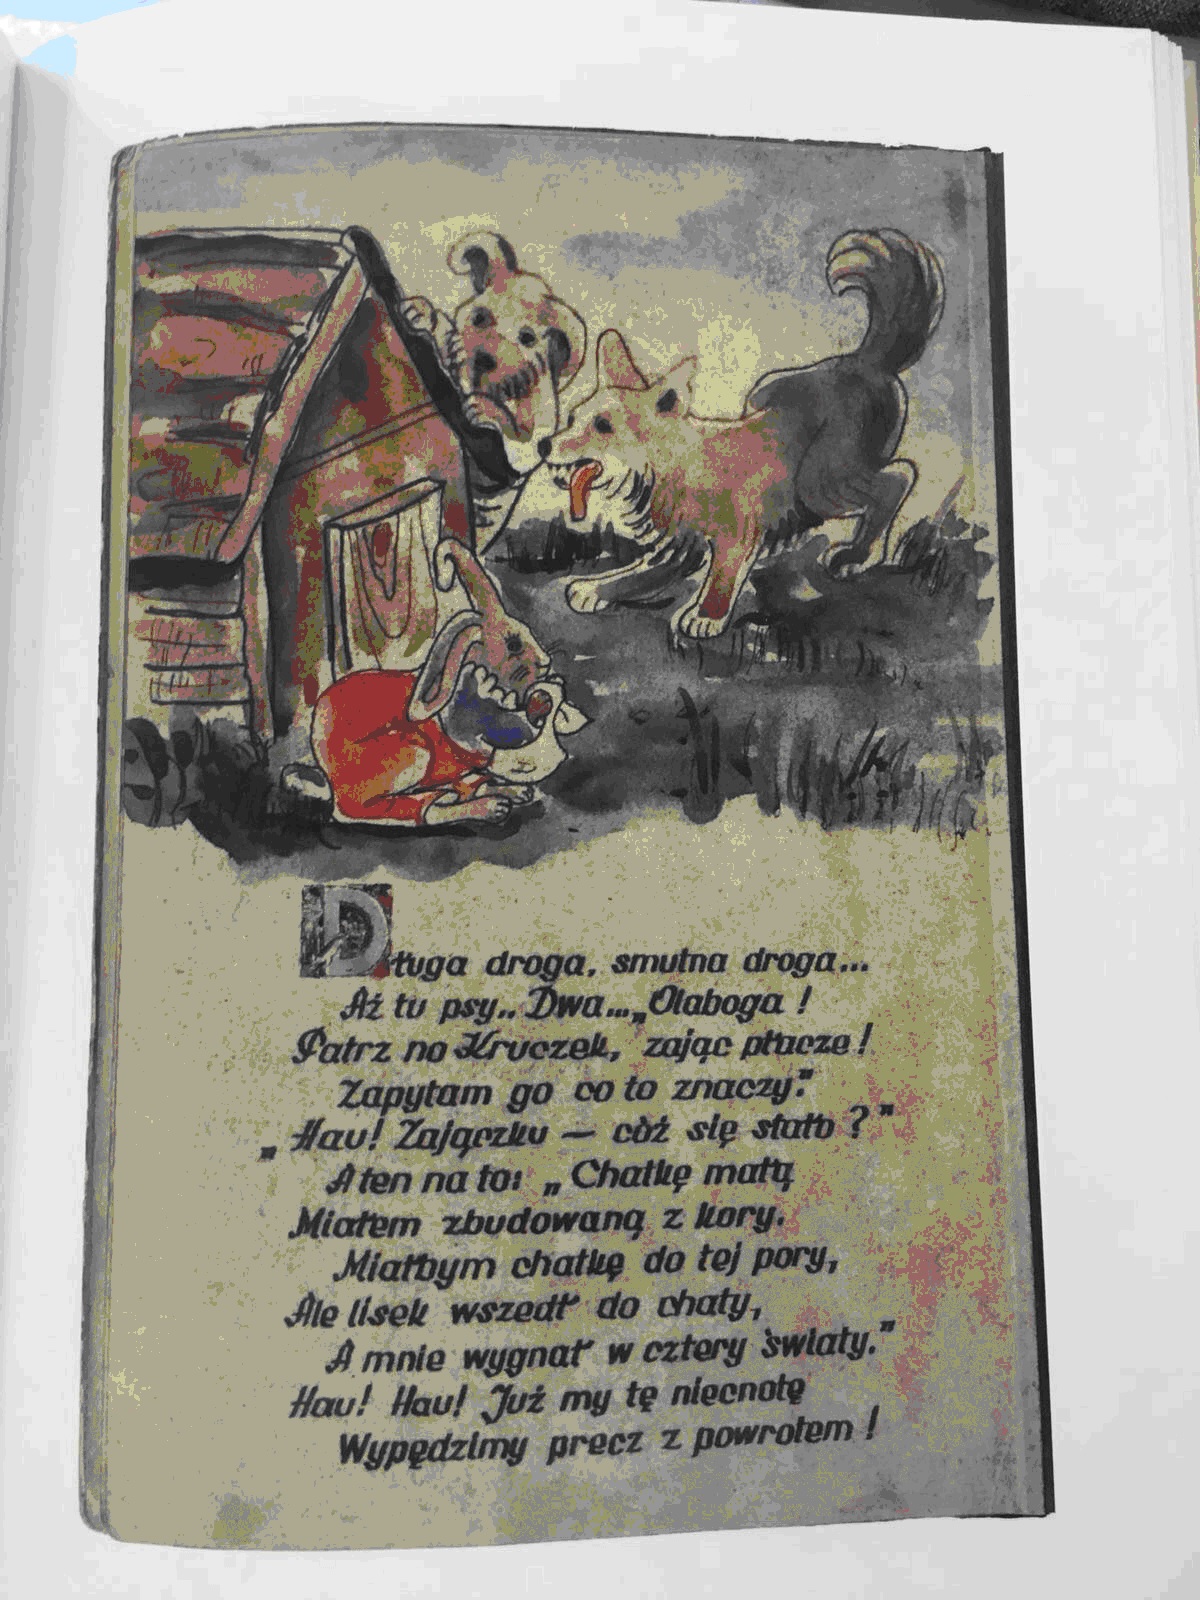 Długa droga, smutna droga...
Aż tu psy.. Dwa...„Olaboga !
Patrz no Kruczek, zając płacze !
Zapytam go co to znaczy."
„ Hau! Zajączku — cóż się stało ? "
A ten na to: „ Chatkę małą
Miałem zbudowaną z kory.
Miałbym chatkę do tej pory,
Ale lisek wszedł do chaty,
A mnie wygnał w cztery światy."
Hau! Hau! Już my tę niecnotę
Wypędzimy precz z powrotem !